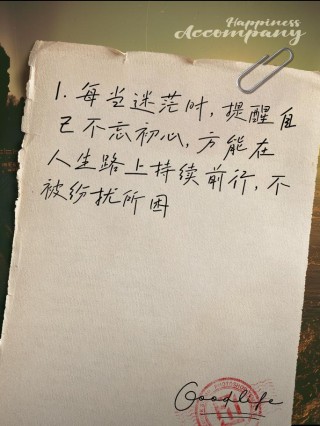 Happiness
Accompany
1. 每当迷茫时, 提醒自
己不忘初心, 方能在
人生路上持续前行, 不
被纷扰所困
Goodlife